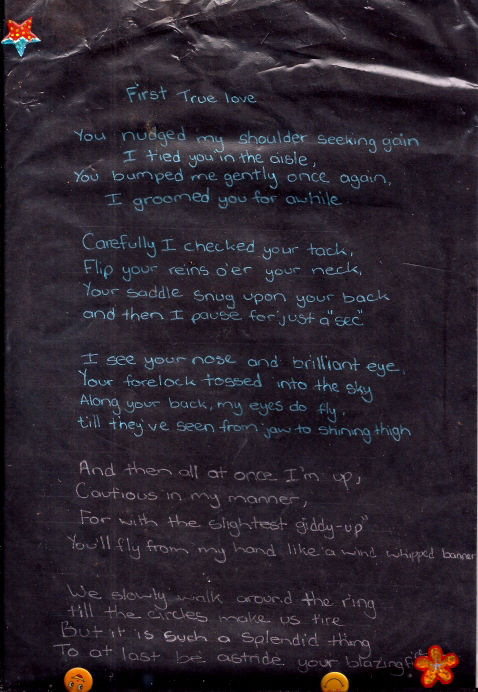 First True love
You nudged my shoulder seeking gain
I tied you in the aisle,
You bumped me gently once again,
I groomed you for awhile.
Carefully I checked your tack,
Flip your reins o'er your neck,
Your saddle snug upon your back
and then I pause for just a "sec"
I see your nose and brilliant eye,
Your forelock tossed into the sky
Along your back, my eyes do fly,
till they've seen from jaw to shining thigh
And then all at once I'm up,
Cautious in my manner,
For with the slightest giddy-up"
You'll fly from my hand like a wind whipped banner
We slowly walk around the ring
till the circles make us tire
But it is such a splendid thing
To at last be astride your blazing fire